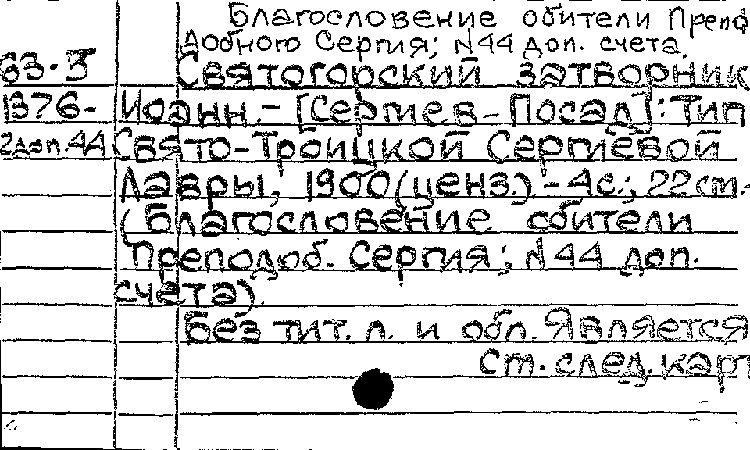 Благословение обители Препо
добного Сергия; N44 доп. счета.
63-5 Святогорский затворник
1376- Иоанн. - [Сергиев-Посад]: Тип
2доп.44 Свято-Троицкой Сергиевой
Лавры, 1900(ценз.). - 4с.; 22см.
(Благословение обители
Преподоб. Сергия; N44 доп.
счета).
Без тит. л. и обл. Является
Ст. след. карт